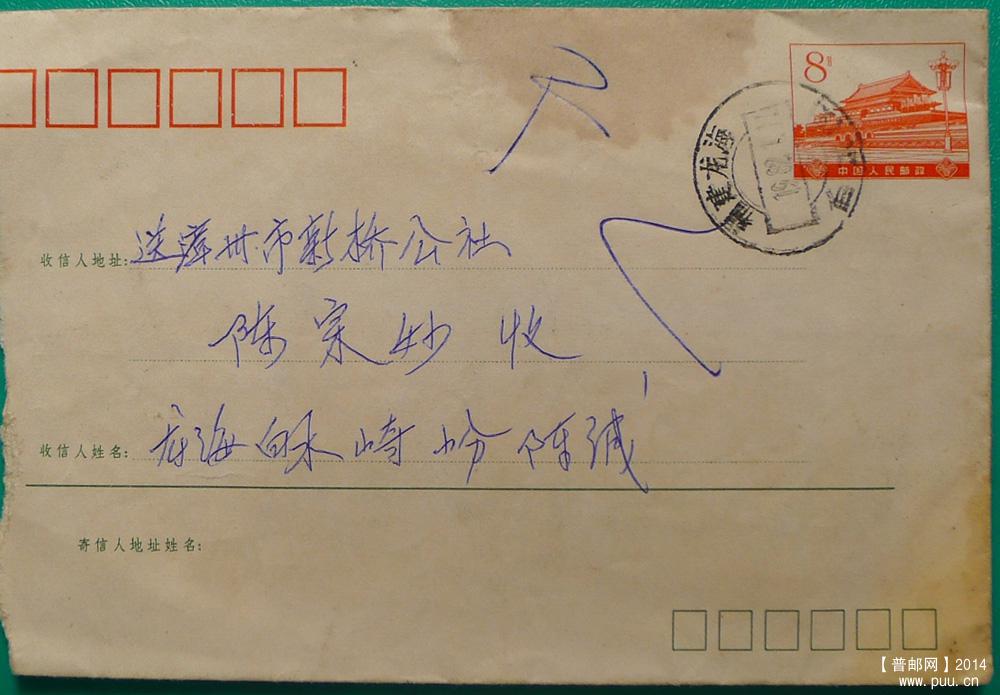 8分
中国人民邮政
福建龙海
收信人地址: 送漳州市新桥公社
陈宗妙 收
收信人姓名: 龙海白水崎 陈
寄信人地址姓名:
【普邮网】2014
www.puu.cn